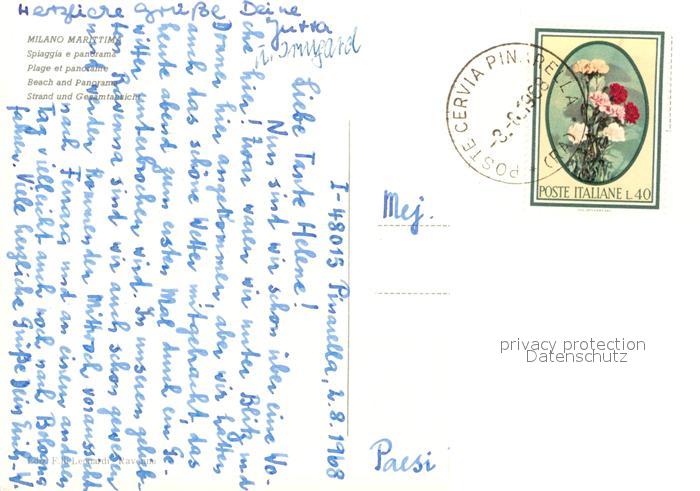 Herzliche Grüße Deine
Jutta
MILANO MARITTIMA
Spiaggia e panorama
Plage et panorame
Beach and Pangrama
Strand und Gesamtansicht
I-48015 Pinarella, 2.8.1968
Liebe Tante Helene!
Nun sind wir schon über eine Wo-
che hier! Zwar waren wir unter Blitz und
Donner hier angekommen, aber wir hatten
auch das schöne Wetter mitgebracht, das
heute abend zum ersten Mal durch ein Ge-
witter unterbrochen wird. In unserem gelieb-
ten Ravenna sind wir auch schon gewesen
und werden kommenden Mittwoch voraussichtl.
nach Ferrara und an einem anderen
Tag vielleicht auch noch nach Bologna
fahren. Viele herzliche Grüße Dein
Ediz. F. Leonardi - Ravenna
POSTE CERVIA PINARELLA (RA)
-3-8-1968
POSTE ITALIANE L.40
Mej.
Paesi
privacy protection
Datenschutz